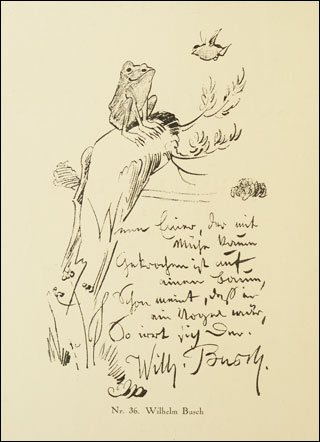 Wenn Einer, der mit
Mühe kaum
Gekrochen ist auf
einen Baum,
Schon meint, daß er
ein Vogel wär,
So irrt sich der.
Wilh. Busch.
Nr. 36. Wilhelm Busch